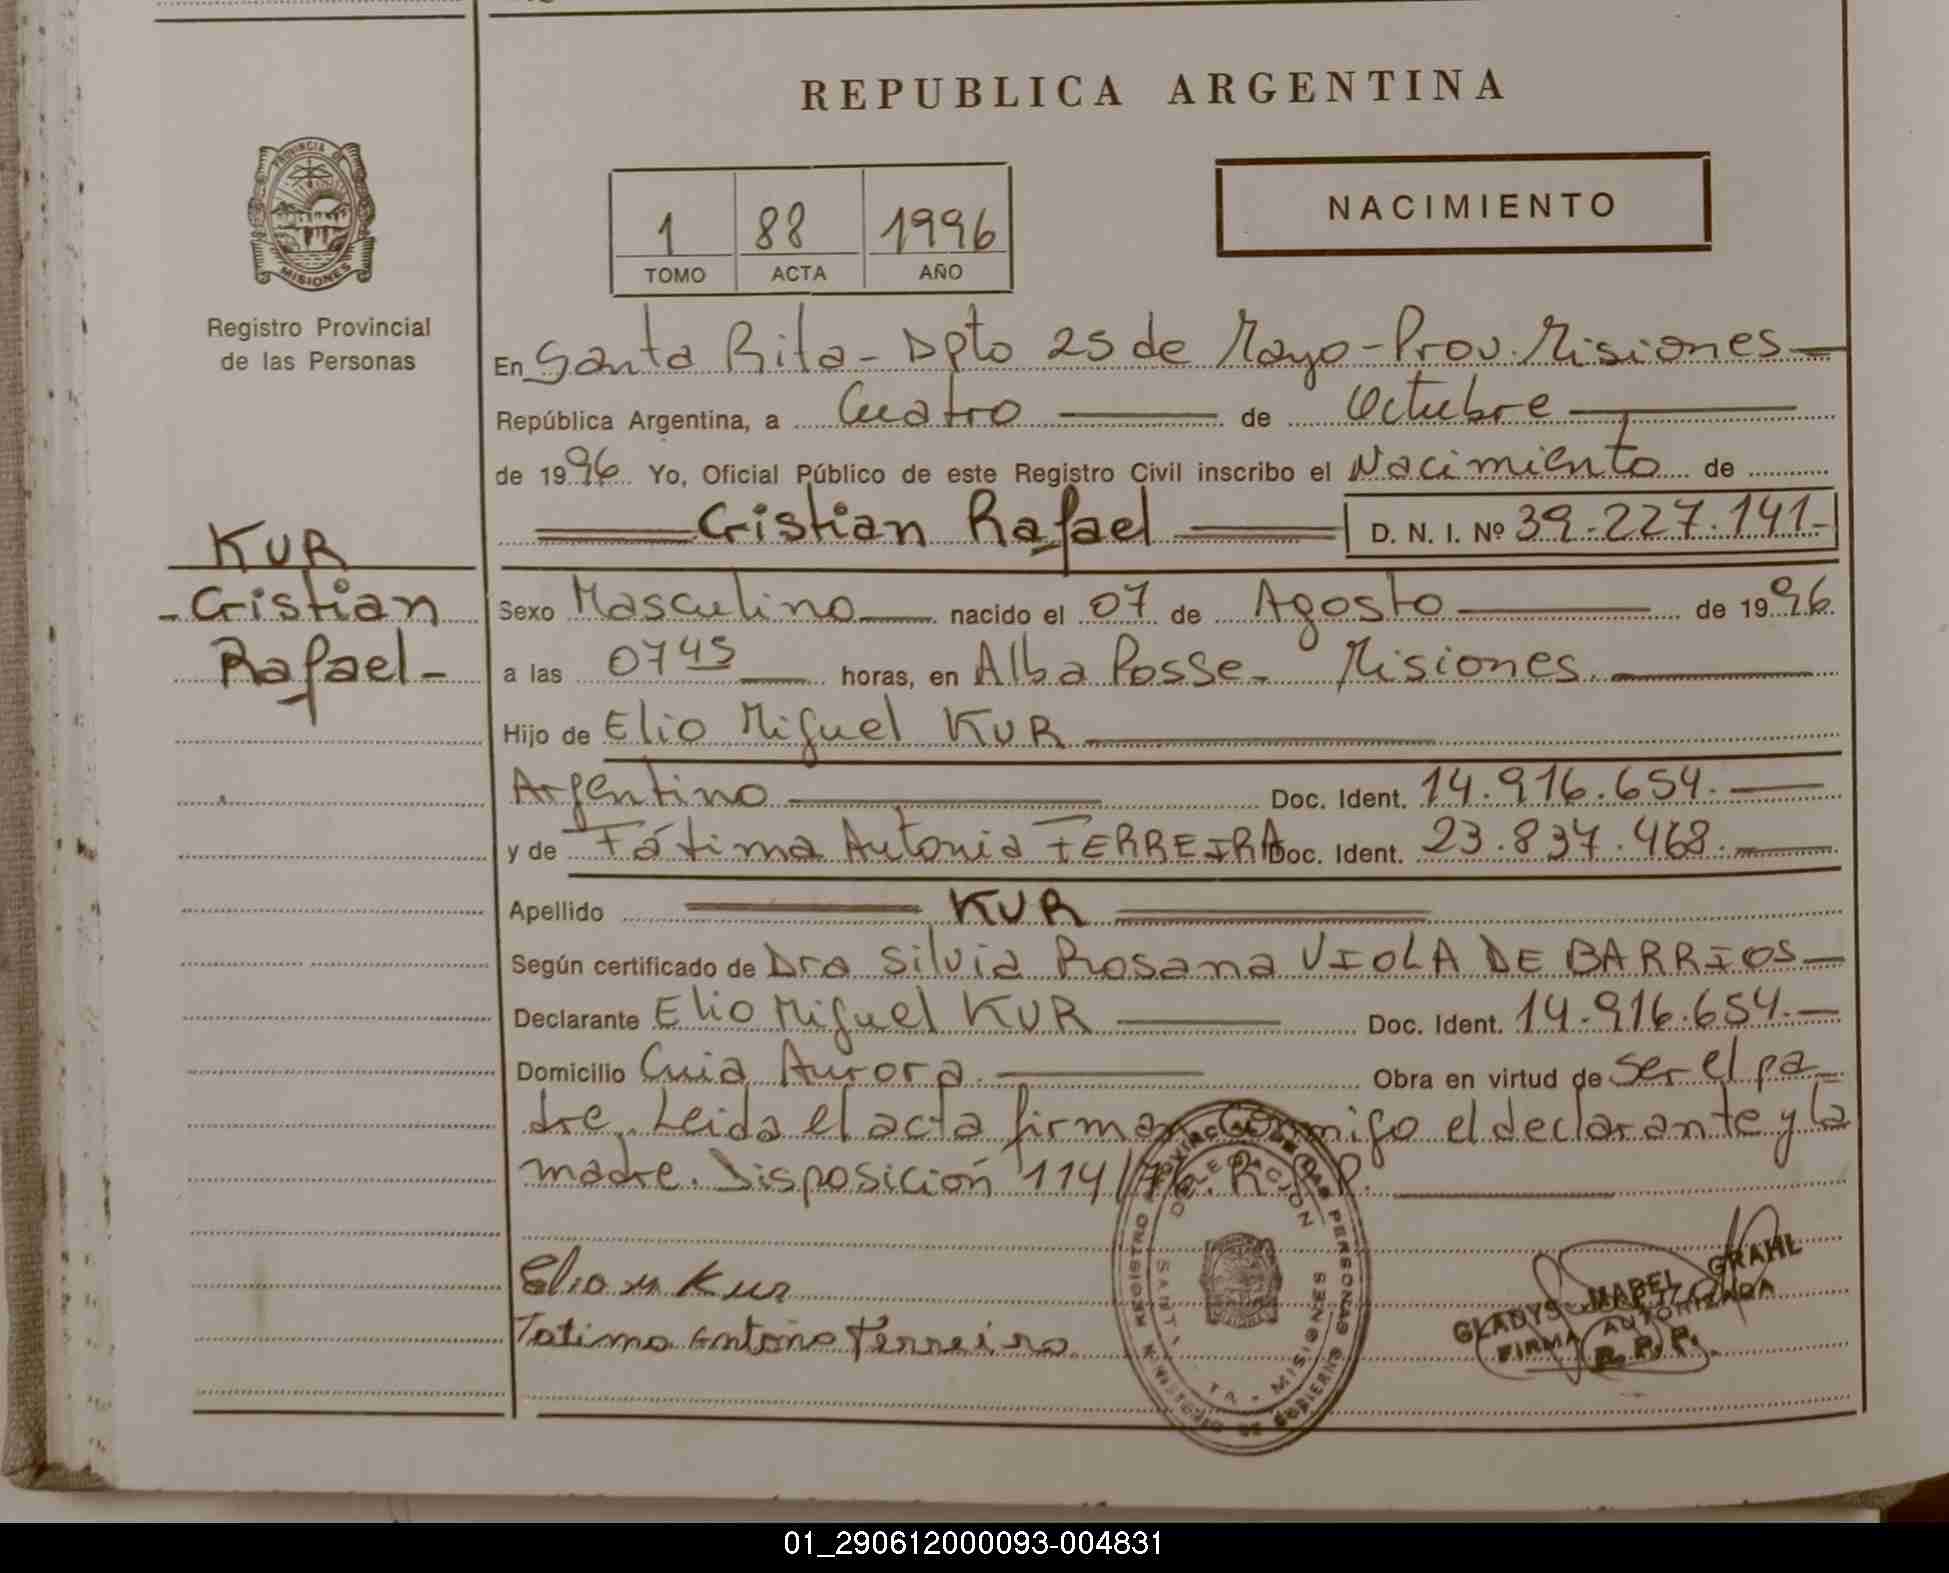 REPUBLICA ARGENTINA
PROVINCIA DE MISIONES
Registro Provincial
de las Personas
1 88 1996
TOMO ACTA AÑO
NACIMIENTO
En Santa Rita - Dpto 25 de Mayo - Prov. Misiones
República Argentina, a Cuatro de Octubre
de 1996 Yo, Oficial Público de este Registro Civil inscribo el Nacimiento de
Cristian Rafael D. N. I. Nº 39.227.141-
KUR
- Cristian
Rafael -
Sexo Masculino nacido el 07 de Agosto de 1996
a las 0745 horas, en Alba Posse - Misiones
Hijo de Elio Miguel KUR
Argentino Doc. Ident. 14.916.654.
y de Fátima Antonia FERREIRA Doc. Ident. 23.837.468.
Apellido KUR
Según certificado de Dra Silvia Rosana VIOLA DE BARRIOS
Declarante Elio Miguel KUR Doc. Ident. 14.916.654.
Domicilio Cuia Aurora. Obra en virtud de ser el pa-
dre. Leida el acta firman conmigo el declarante y la
madre. Disposición 114/76. R.P.P.
Elio M Kur
Fatima Antonia Ferreira
REGISTRO PROVINCIAL DE LAS PERSONAS
MINISTERIO DE GOBIERNO
DELEGACION
SANTA RITA - MISIONES
GLADYS MABEL GRAHL
FIRMA AUTORIZADA
R. P. P.
01_290612000093-004831